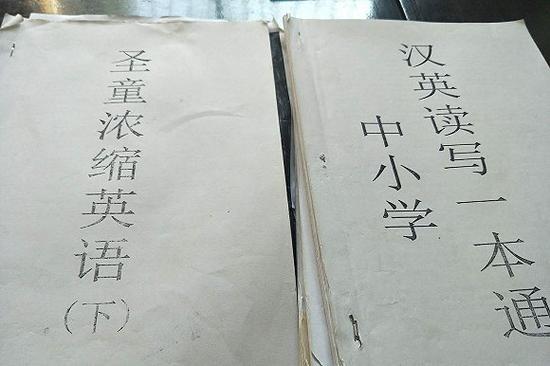 圣童浓缩英语
(下)
汉英读写一本通
中小学